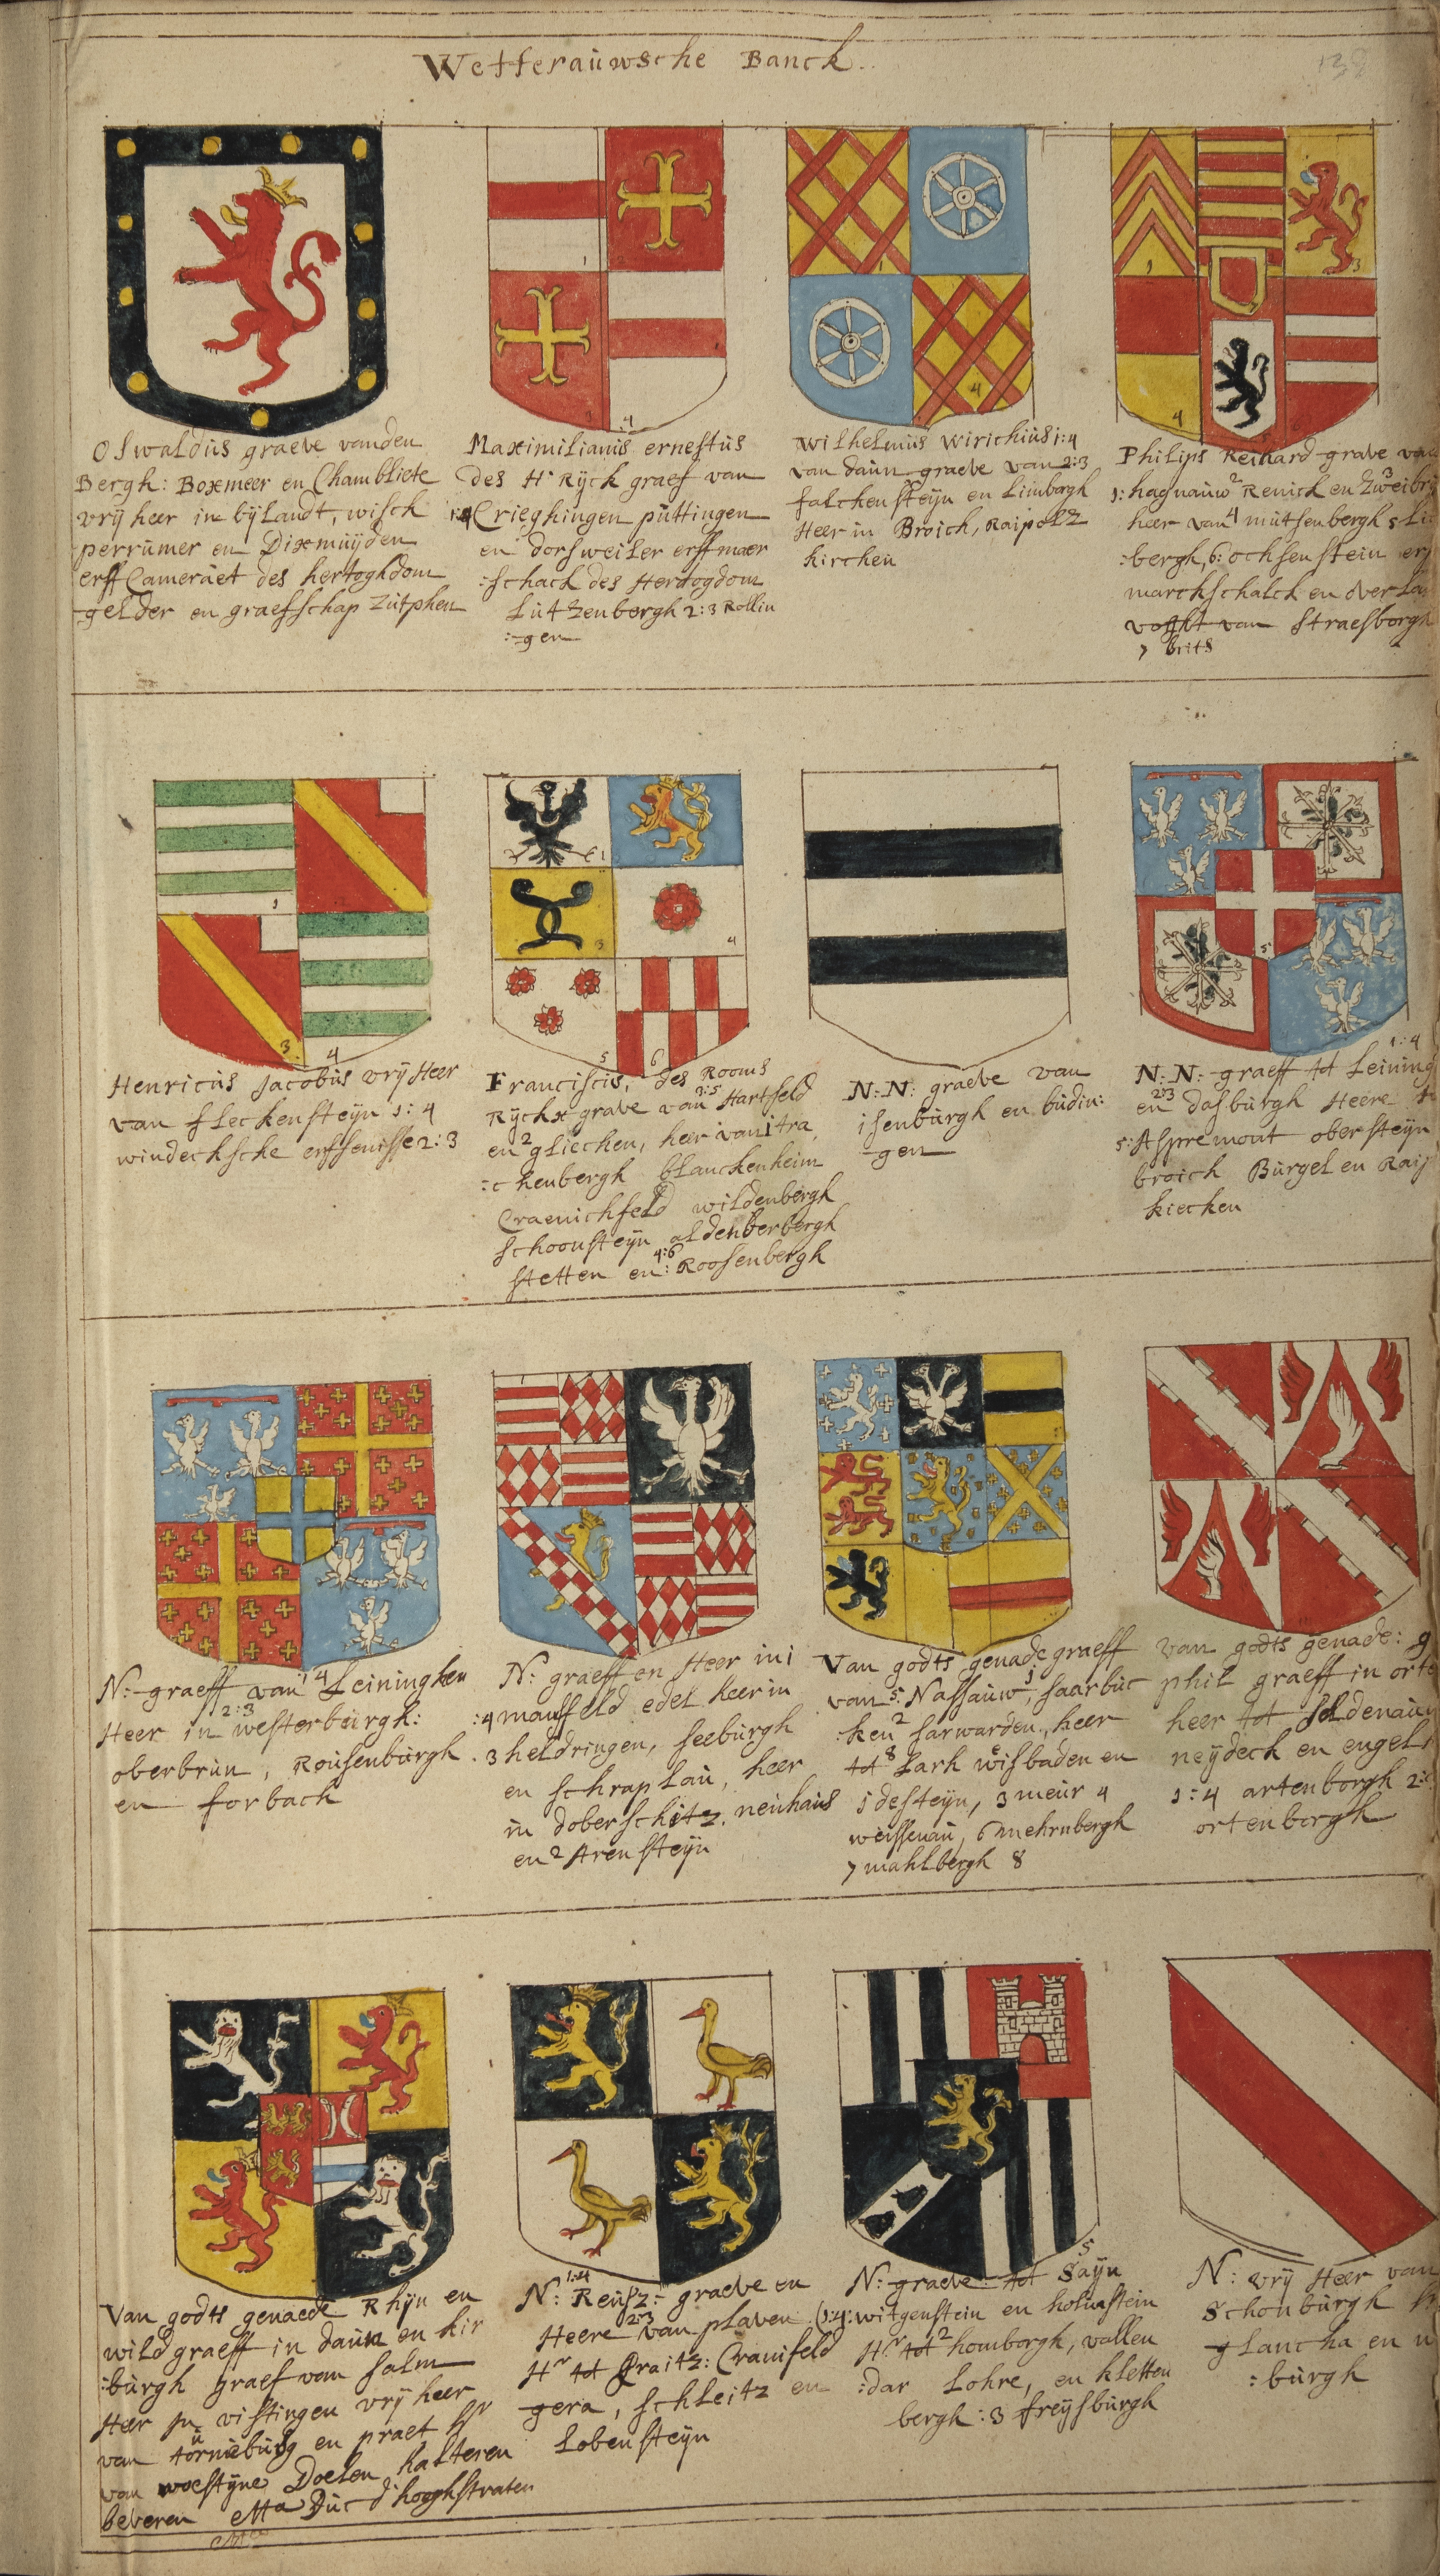 Wetterauwsche Banck.
Oswaldus graeve vanden
Bergh: Boxmeer en Chambliete
vrij heer in bijlandt, wisch
perrumer en Dixmuijden
erff Cameraet des hertoghdom
gelder en graefschap zutphen
Maximilianus ernestus
des H Rijck graef van
1:4 Crieghingen puttingen
en dorsweiler erffmaer
:schack des Hertogdom
Lutzenbergh 2:3 Rollin
:gen
Wilhelmus Wirichius 1:4
van daun graeve van 2:3
falckensteijn en Limborgh
Heer in Broich, Raipoltz
kirchen
Philips Reinard grave
1: hagnauw 2 Renick en 3
heer van 4 mutsenbergh 5
:bergh, 6: ochsenstein
marckschalck en over
voght van Straesborgh
7 brits
Henricus Jacobus vrij Heer
van fleckensteijn 1:4
windecksche erffenisse 2:3
Franciscis, des Rooms
Rijckx grave van 3:5 Hartfeld
en 2 gliechen, heer van 1 tra
:chenbergh blanckenheim
Craenichfeld wildenbergh
schoonsteijn aldenberbergh
stetten en 4:6 Roosenbergh
N:N: graeve van
isenburgh en budin:
gen
N:N: graeff tot 1:4
en 2:3 dasburgh Heere
5: Aspremont obersteijn
broich Burgel en
kiecken
N: graeff van 1 4 Leininghen
Heer in 2:3 westerburgh:
oberbrun, Rousenburgh
en forbach
N: graeff en Heer in 1
:4 mansfeld edel heer in
3 heldringen, seeburgh
en schraplau, heer
in doberschitz. neuhaus
en 2 Arensteijn
Van godts genade graeff
van 5 Nassauw 1, saarbuc
:ken 2 sarwarden, heer
tot 8 Larh wisbaden en
idesteijn, 3 meur 4
weissenau, 6 mehrnbergh
7 mahlbergh 8
van godts genade:
phil graeff in
heer tot
neijdeck en
1:4 artenborgh
ortenborgh
Van godts genaede Rhijn en
wildgraeff in daun en kir
:burgh graef van salm
Heer in vistingen vrij heer
van tornuburg en praet Hr
van woestijne Doelen halteren
beveren etta Duc d'hooghstraten
N: 1:4 Reusz: graeve en
Heere 2:3 van plaven
Hr tot Graitz: Cranifeld
gera, schleitz en
Lobensteijn
N: graeve: tot 5 Saijn
1:4: witgenstein en holnstein
Hr tot 2 homborgh, vallen
:dar Lohre, en kletten
bergh: 3 freijsburgh
N: vrij Heer van
Schonburgh
glancha en
:burgh